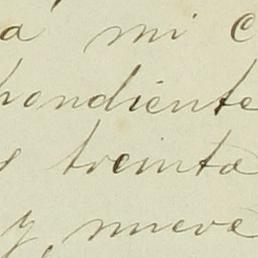 a mi C
pondiente
treinta
y nueve